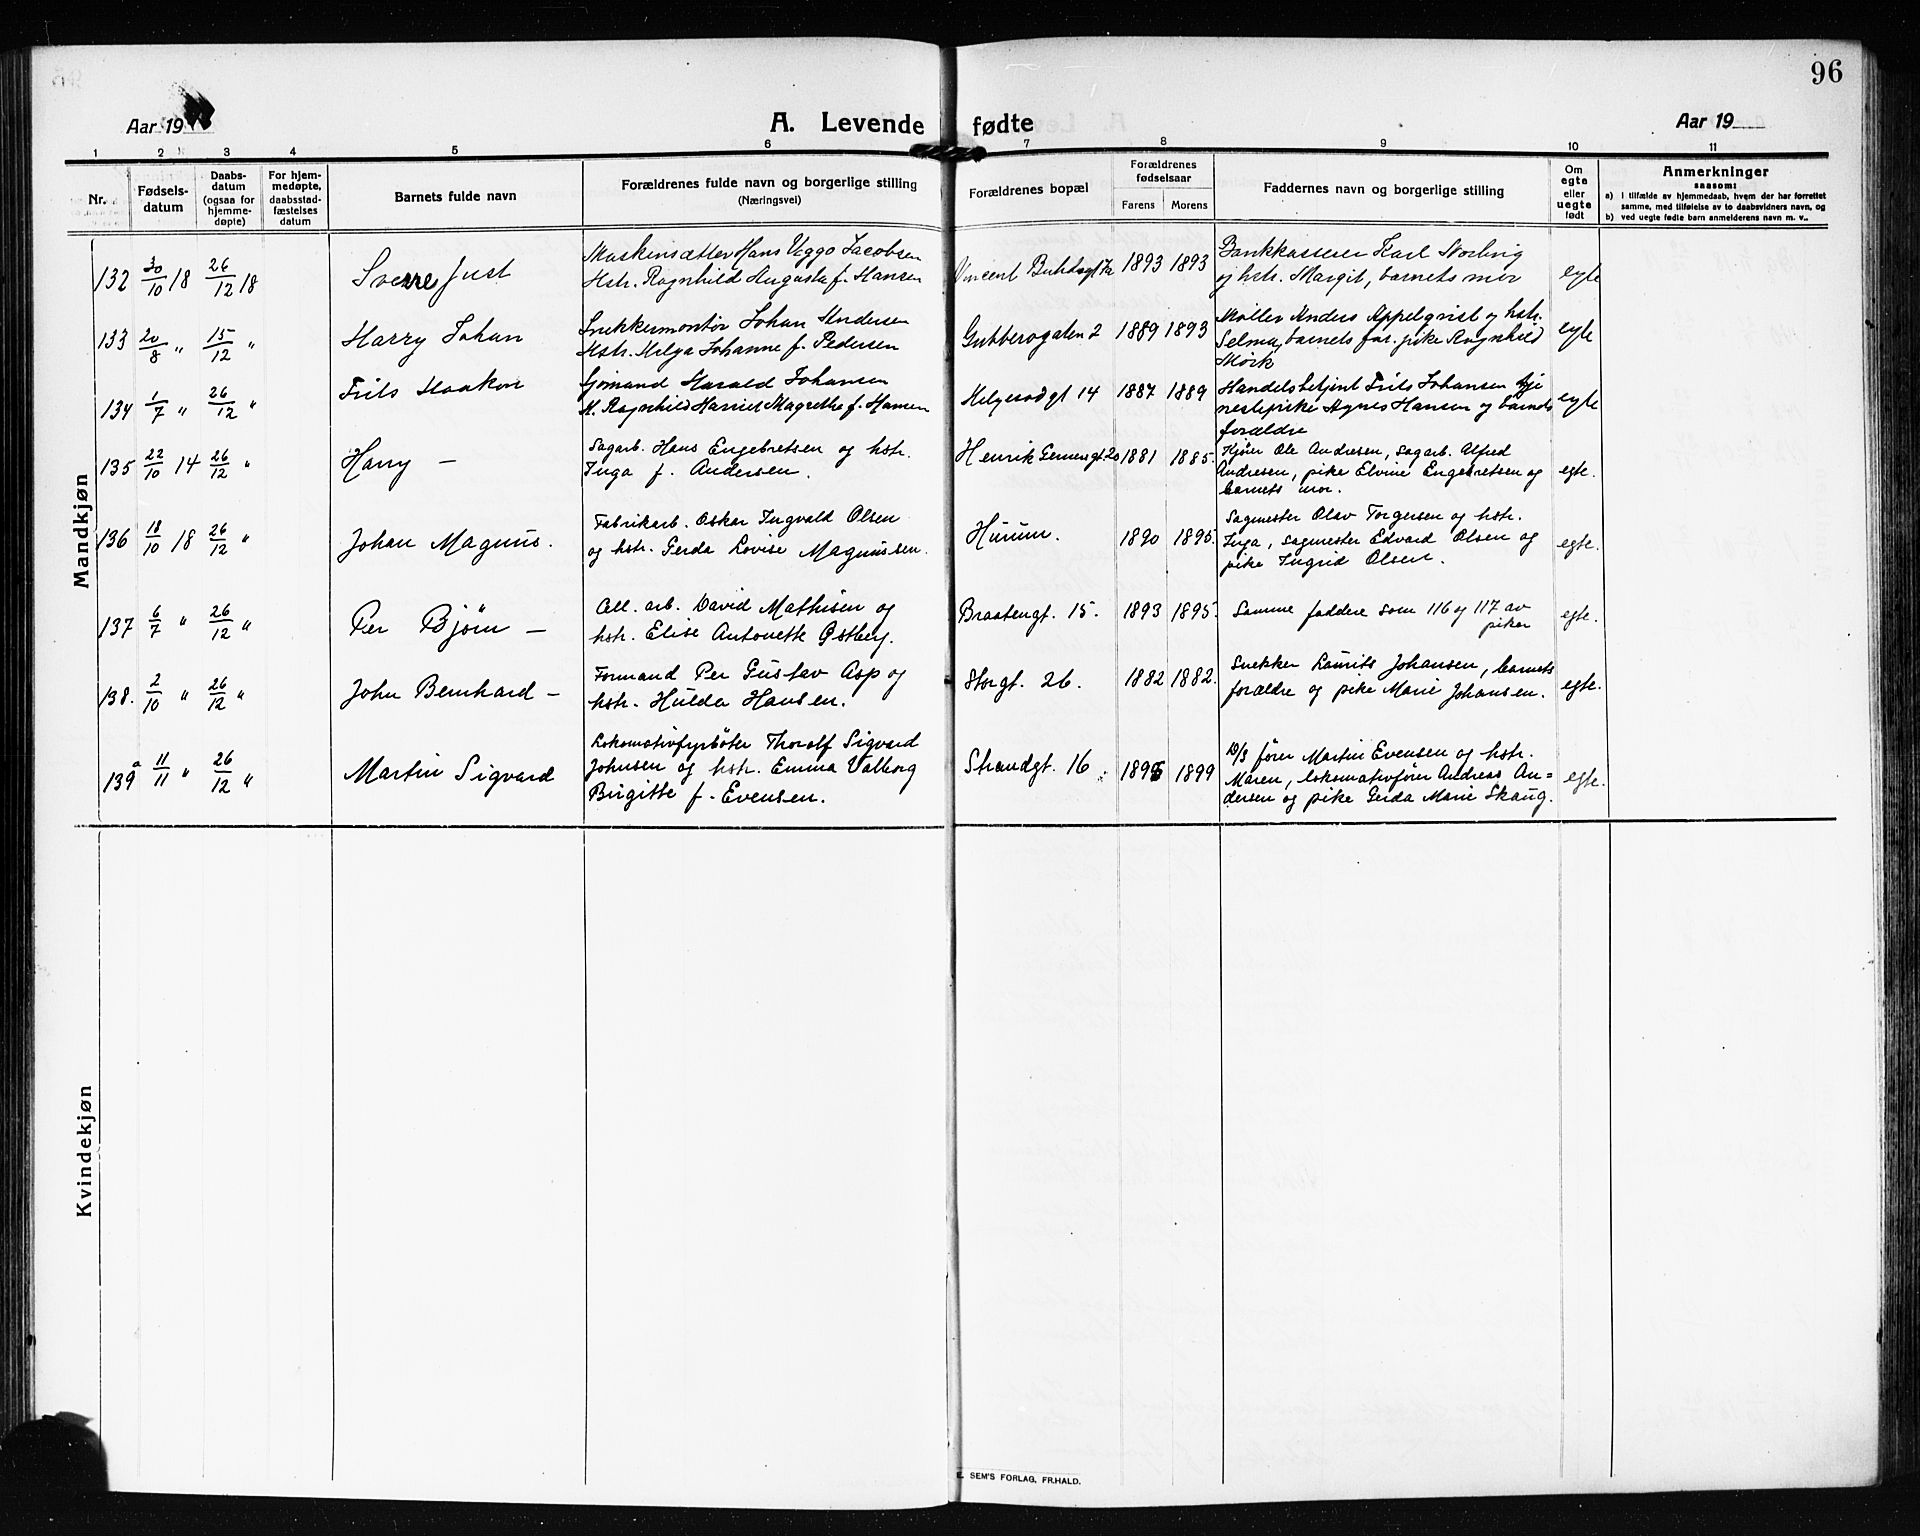 96
Aar 19
A. Levende fødte
Aar 19
1 2 3 4 5 6 7 8 9 10 11
Nr.
Fødsels-
datum
Daabs-
datum
(ogsaa for
hjemme-
døpte)
For hjem-
medøpte,
daabsstad-
fæstelses
datum
Barnets fulde navn
Forældrenes fulde navn og borgerlige stilling
(Næringsvei)
Forældrenes bopæl
Forældrenes
fødselsaar
Farens Morens
Faddernes navn og borgerlige stilling
Om
egte
eller
uegte
født
Anmerkninger
saasom:
a) i tilfælde av hjemmedaab, hvem der har forrettet
samme, med tilføielse av to daabsvidners navn, og
b) ved uegte fødte barn anmelderens navn m. v..
Mandkjøn
132 30/10 18 26/12 18
Sverre Just
Maskinsætter Hans Viggo Jacobsen
Hstr. Ragnhild Augusta f. Hansen
Vincent
1893 1893
Bankkasserer Karl
og hstr. Margit, barnets mor
egte
133 20/8 " 15/12 "
Harry Johan
Snekkermontør Johan Andersen
Hstr. Helga Johanne f. Pedersen
Gubberogaten 2
1889 1893
Møller Anders Appelqvist og hstr.
Selma, barnets far. pike Ragnhild
Mørk
egte
134 1/7 " 26/12 "
Frits Haakon
Sjømand Harald Johansen
H. Ragnhild Harriet Magrethe f. Hansen
Helgesodgt 14
1887 1889
Handelsbetjent Frits Johansen tje
nestepike Agnes Hansen og barnets
forældre
egte
135 22/10 14 26/12 "
Harry —
Sagarb. Hans Engebretsen og hstr.
Inga f. Andersen.
Henrik Gernersgt 20
1881 1885.
Kjører Ole Andresen, Sagarb. Alfred
Andresen, pike Elvine Engebretsen og
barnets mor.
egte.
136 18/10 18 26/12 "
Johan Magnus.
Fabrikarb. Oskar Ingvald Olsen
og hstr. Gerda Lovise Magnussen.
Hurum.
1890 1895.
Sagmester Olav Torgersen og hstr.
Inga, Sagmester Edvard Olsen og
pike Ingrid Olsen.
egte.
137 6/7 " 26/12 "
Per Bjørn —
Cell. arb. David Mathisen og
hstr. Elise Antonette Østberg.
Braatengt. 15.
1893 1895.
Samme faddere som 116 og 117 av
piker
egte.
138. 2/10 " 26/12 "
John Bernhard —
Formand Per Gustav Asp og
hstr. Hulda Hansen.
Storgt. 26.
1882 1882.
Snekker Laurits Johansen, barnets
forældre og pike Marie Johansen.
egte.
139 a 11/11 " 26/12 "
Martin Sigvard
Lokomotivfyrbøter Thoralf Sigvard
Johnsen og hstr. Emma Valborg
Birgitte f. Evensen.
Strandgt. 16.
1895 1899
D/S fører Martin Evensen og hstr.
Maren, lokomotivfører Andreas An=
dersen og pike Gerda Marie Skaug.
egte.
Kvindekjøn
E. SEM'S FORLAG, FR.HALD.